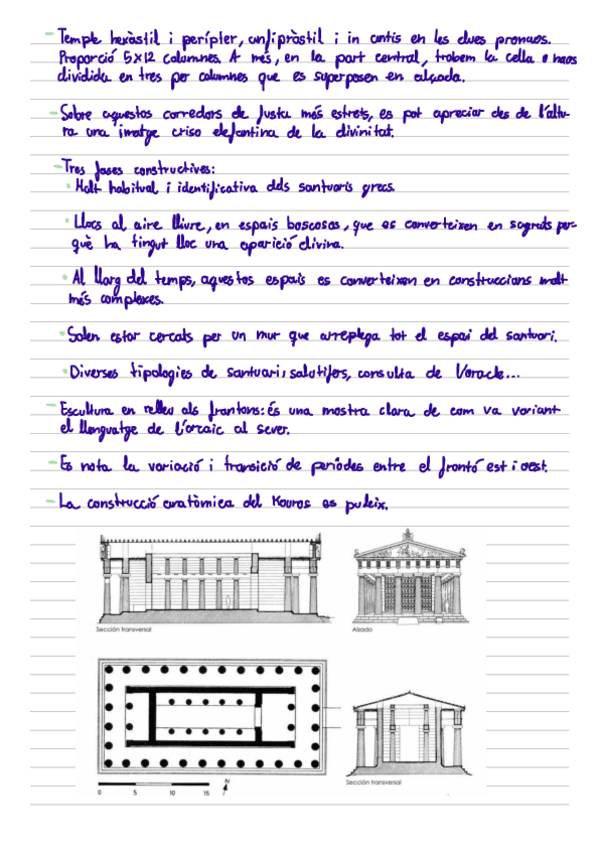 - Temple hexàstil i perípter, anfipròstil i in antis en les dues pronaos.
Proporció 5x12 columnes. A més, en la part central, trobem la cella o naos
dividida en tres per columnes que es superposen en alçada.
- Sobre aquestos corredors de fusta més estrets, es pot apreciar des de l'altu-
ra una imatge criso elefantina de la divinitat.
- Tres fases constructives:
• Molt habitual i identificativa dels santuaris grecs.
• Llocs al aire lliure, en espais boscosos, que es converteixen en sagrats per-
què ha tingut lloc una aparició divina.
• Al llarg del temps, aquestos espais es converteixen en construccions molt
més complexes.
• Solen estar cercats per un mur que arreplega tot el espai del santuari.
• Diverses tipologies de santuari: salutifers, consulta de l'oracle...
- Escultura en relleu als frontons: és una mostra clara de com va variant
el llenguatge de l'arcaic al sever.
- Es nota la variació i transició de períodes entre el frontó est i oest.
- La construcció anatòmica del Kouros es puleix.
Sección transversal
Alzado
Sección transversal
N
0 5 10 15